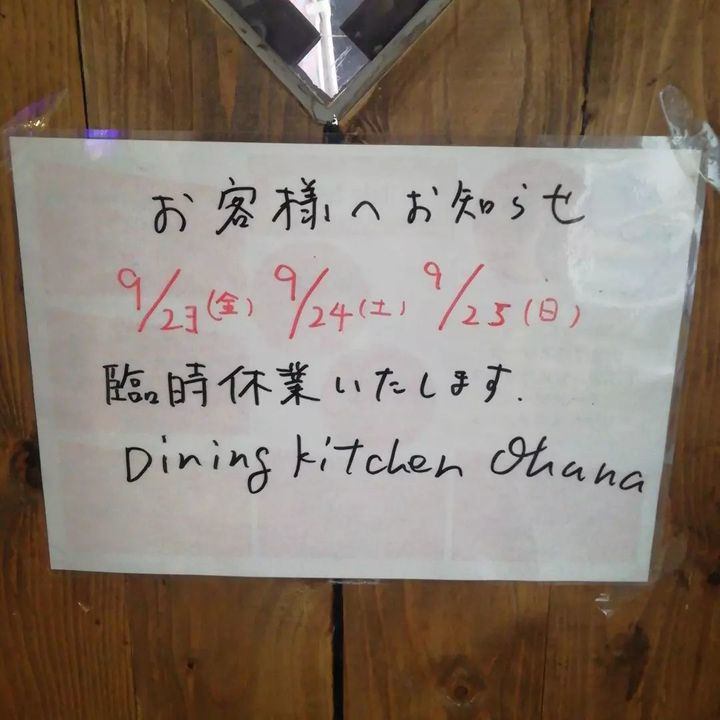 お客様へお知らせ
9/23(金) 9/24(土) 9/25(日)
臨時休業いたします.
Dining kitchen Ohana